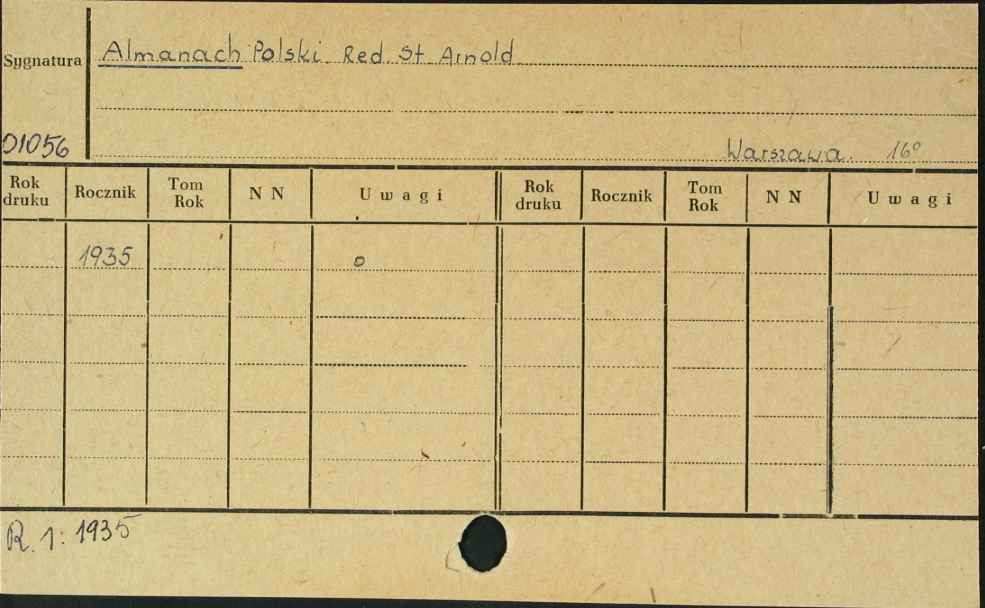 Sygnatura
Almanach Polski. Red. St. Arnold
01056
Warszawa. 16°
Rok druku Rocznik Tom Rok N N Uwagi Rok druku Rocznik Tom Rok N N Uwagi
1935 o
R. 1: 1935